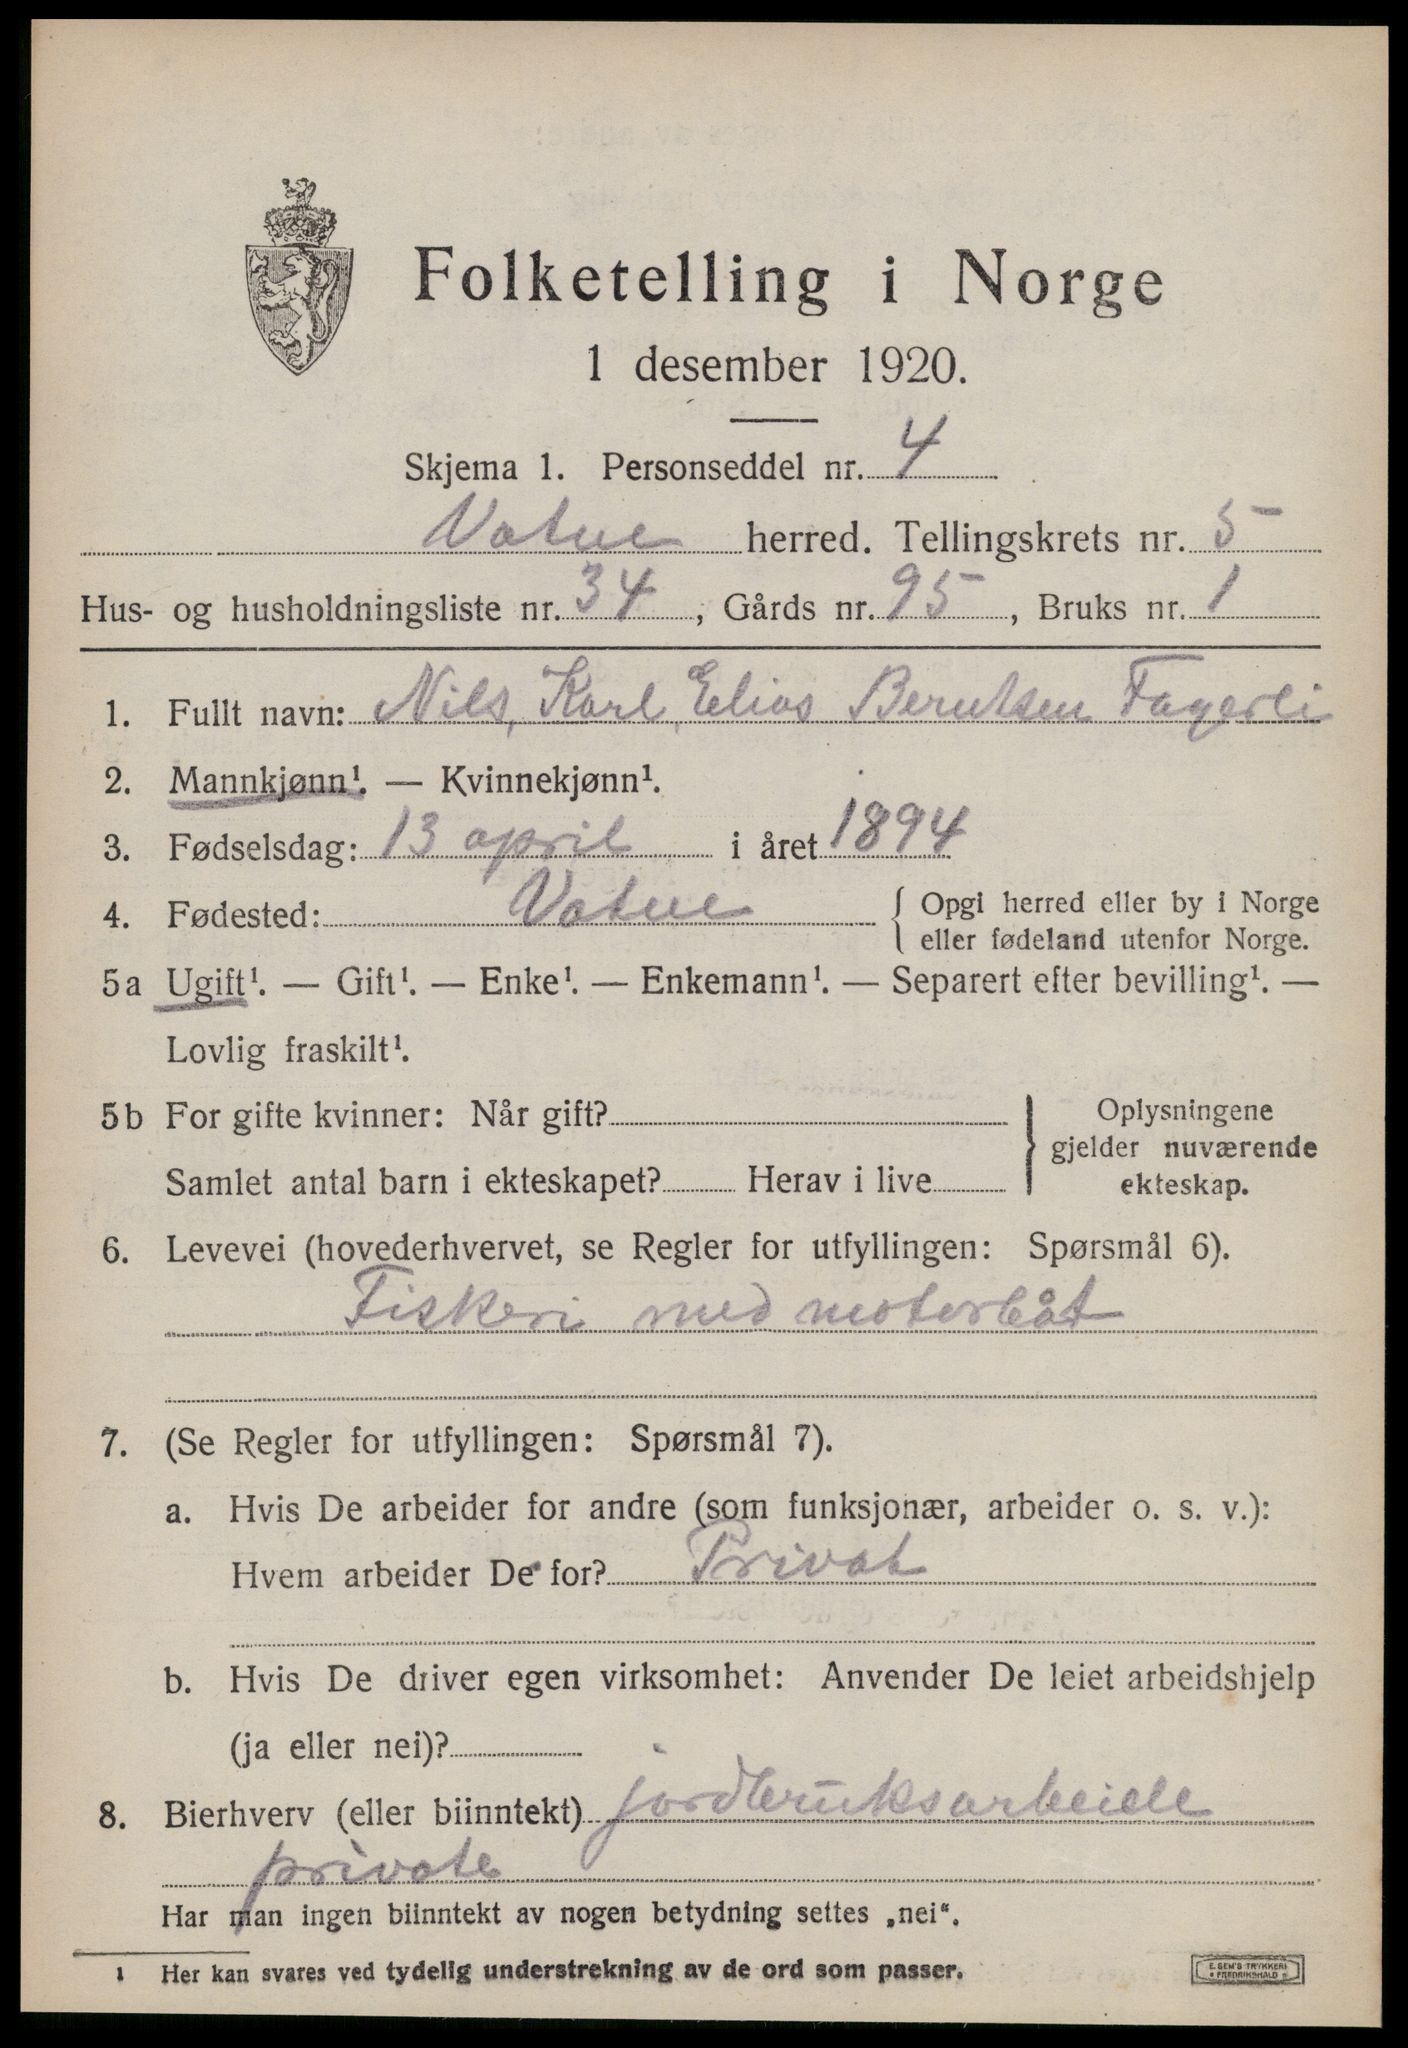 Folketelling i Norge
1 desember 1920.
Skjema 1. Personseddel nr. 4
Vatne herred. Tellingskrets nr. 5
Hus- og husholdningsliste nr. 34, Gårds nr. 95, Bruks nr. 1
1. Fullt navn: Nils, Karl, Elias Berntsen Fagerli
2. Mannkjønn¹. — Kvinnekjønn¹.
3. Fødselsdag: 13 april i året 1894
4. Fødested: Vatne { Opgi herred eller by i Norge
eller fødeland utenfor Norge.
5a Ugift¹. — Gift¹. — Enke¹. — Enkemann¹. — Separert efter bevilling¹. —
Lovlig fraskilt¹.
5b For gifte kvinner: Når gift? } Oplysningene
gjelder nuværende
Samlet antal barn i ekteskapet? Herav i live ekteskap.
6. Levevei (hovederhvervet, se Regler for utfyllingen: Spørsmål 6).
Fiskeri med motorbåt
7. (Se Regler for utfyllingen: Spørsmål 7).
a. Hvis De arbeider for andre (som funksjonær, arbeider o. s. v.):
Hvem arbeider De for? Privat
b. Hvis De driver egen virksomhet: Anvender De leiet arbeidshjelp
(ja eller nei)?
8. Bierhverv (eller biinntekt) jordbruksarbeide
private
Har man ingen biinntekt av nogen betydning settes „nei“.
1 Her kan svares ved tydelig understrekning av de ord som passer.
E. SEM'S TRYKKERI
FREDRIKSHALD